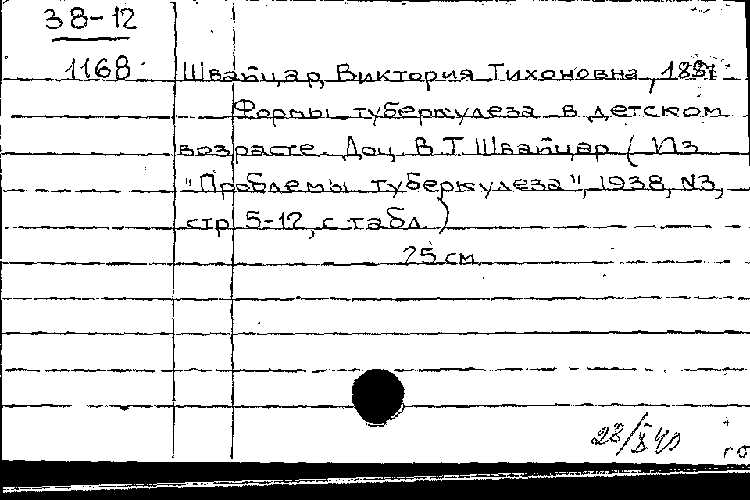 38-12
1168
Швайцар, Виктория Тихоновна,
Формы туберкулеза в детском
возрасте. Доц. В.Т. Швайцар (Из
"Проблемы туберкулеза", 1938, N3,
стр. 5-12, с табл.)
25 см